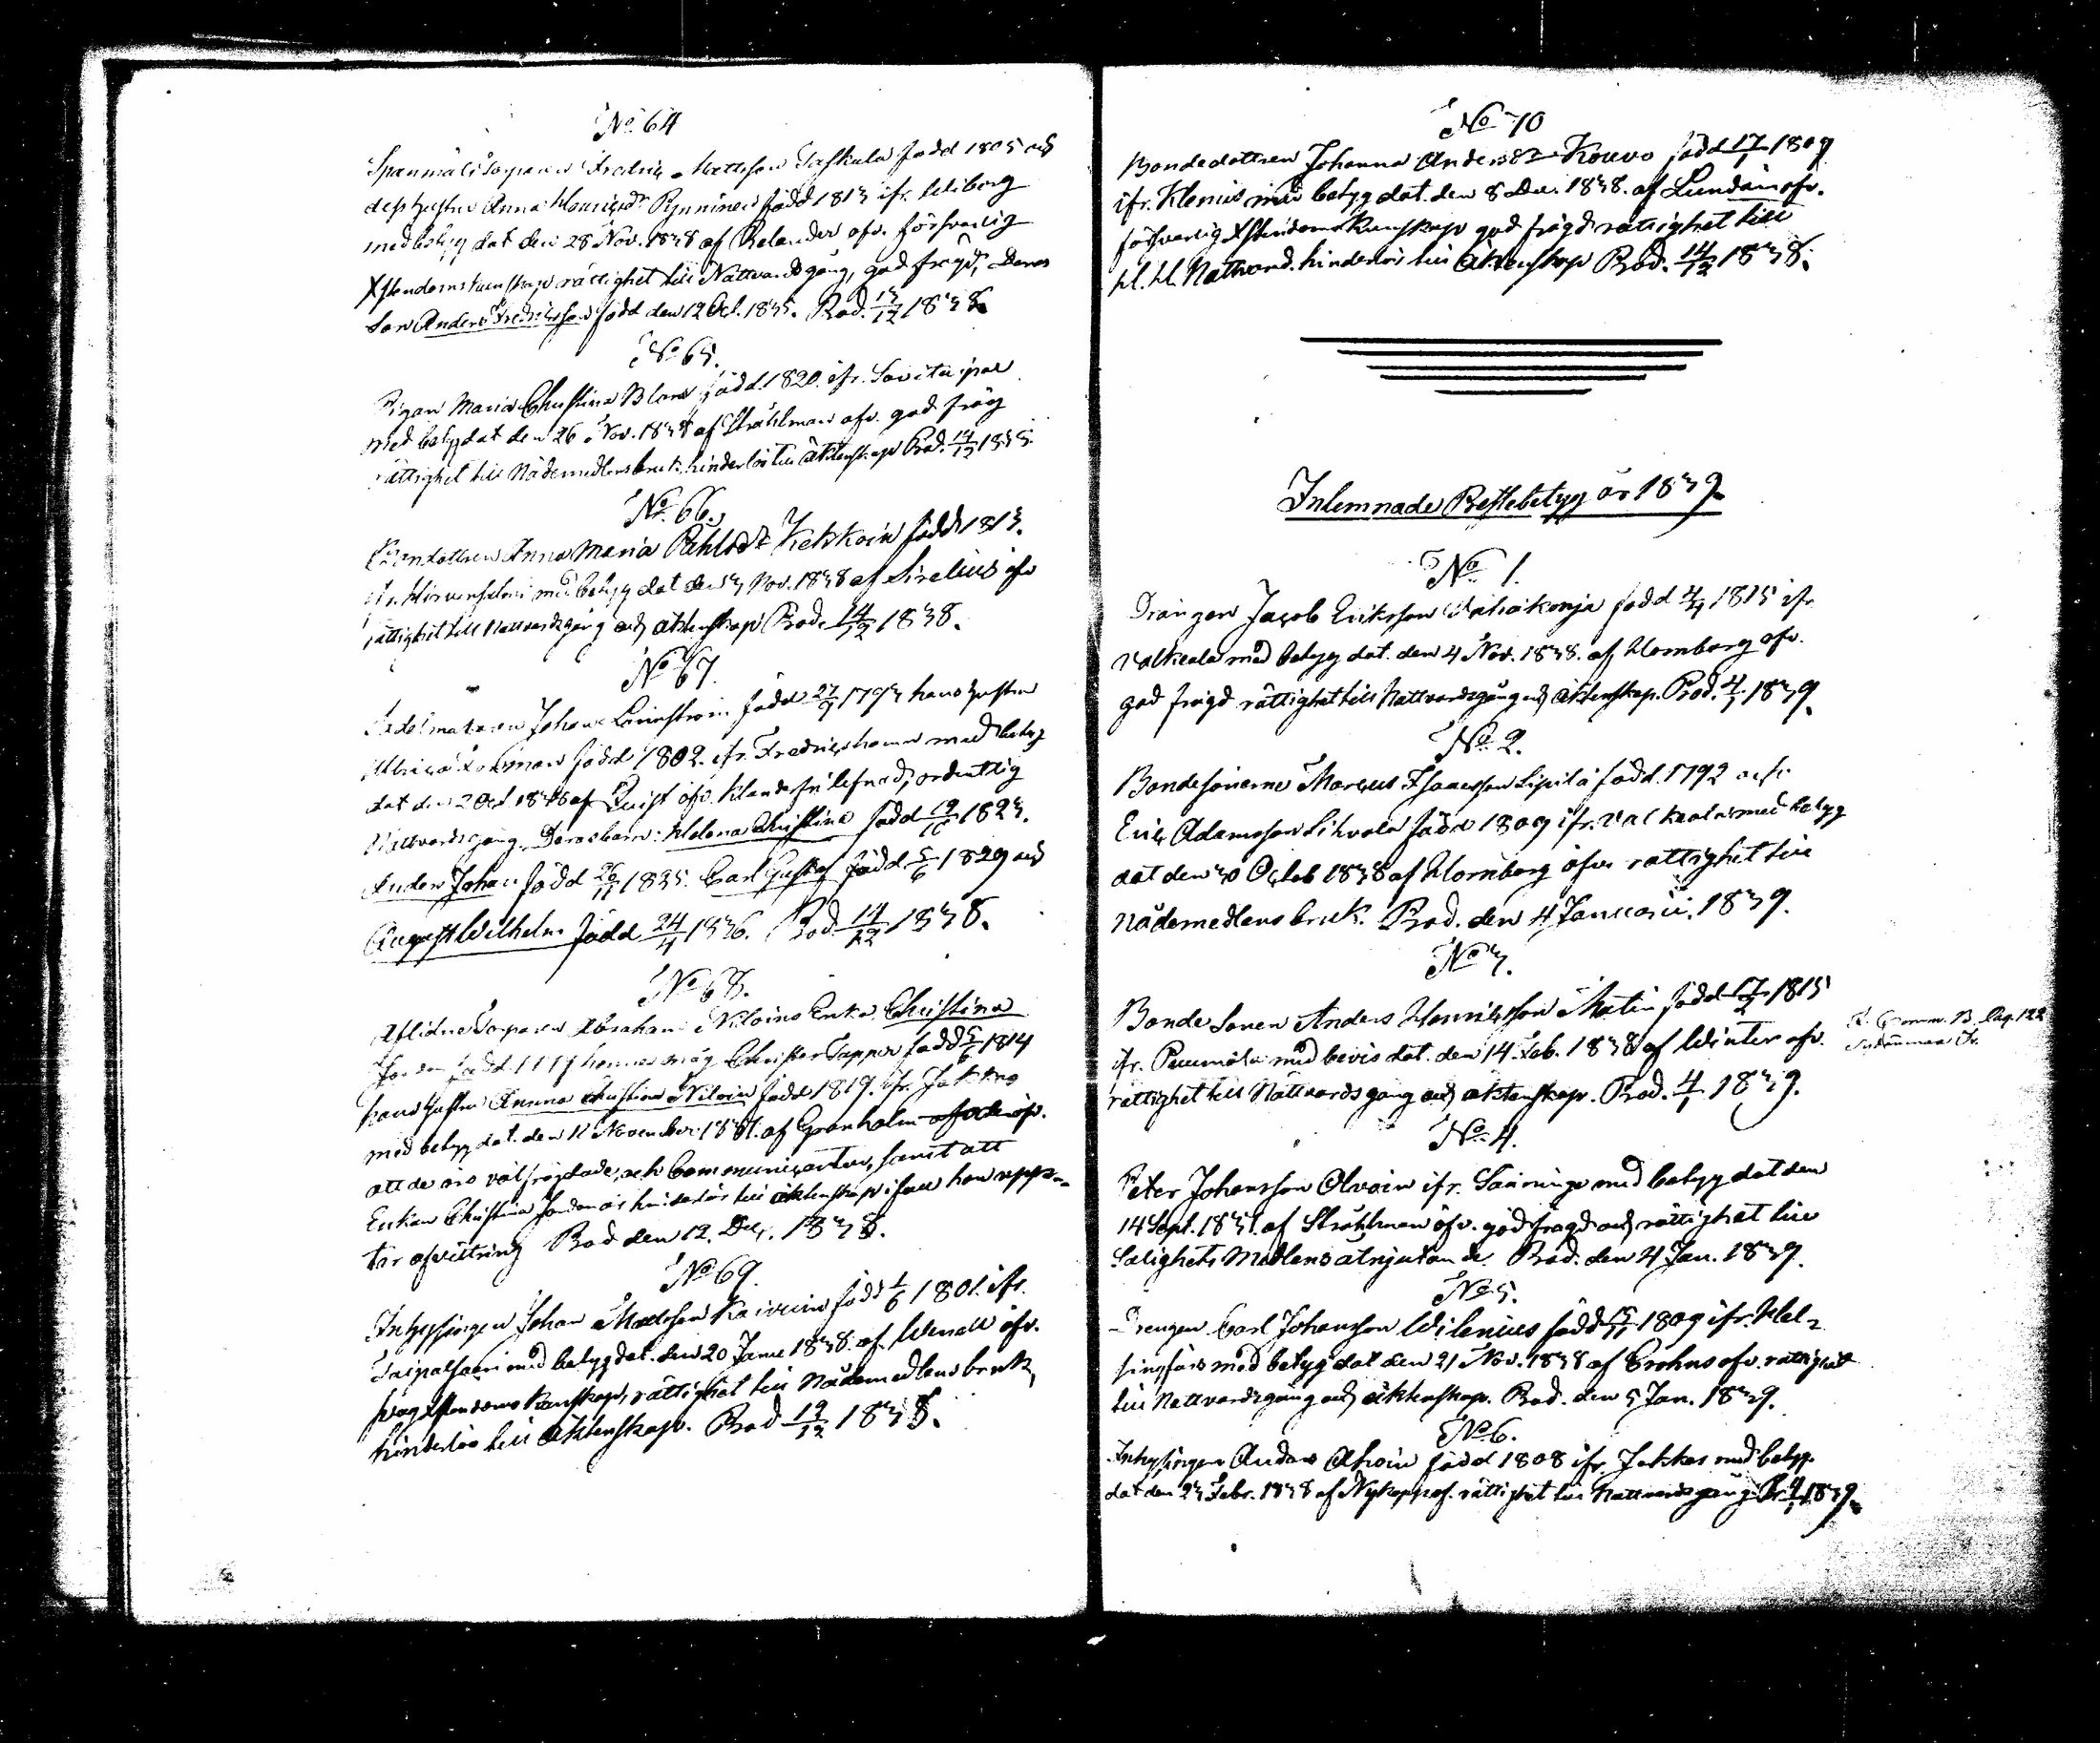 No. 64
Spanmåls Torparen Fredric Mattsson Taskula född 1805 och
dess hustru Anna Henricsdr Rynninen född 1813 ifr. Wiborg
med betyg dat den 28 Nov. 1838 af Relander ofv. försvarlig
Xstendomskunskap rättighet till Nattvardsgång, god frägd, Deras
Son Anders Fredricsson född den 12 Oct. 1835. Prod. 13/12 1838.
No. 65.
Pigan Maria Christina Blom född. 1820. ifr. Savitaipal
med betyg dat den 26 Nov. 1838 af Stråhlman ofv. god fräg
rättighet till Nådemedlens bruk, hinderlös till äktenskap Prod. 14/12 1838.
No. 66.
Bondottren Anna Maria Pehlsdr Kekkoin född 1813.
ifr. Hirvensalmi med betyg dat den 3 Nov. 1838 af Sirelius ofv
rättighet till Nattvardsgång och äktenskap Prod. 14/12 1838.
No. 67.
Johan Lönnström född 27/9 1793 hans hustru
Ulrica född 1802. ifr. Fredricshamn med betyg
dat den 2 Oct. 1838 af Quist ofv. klanderfri lefnad, ordentlig
Nattvardsgång. Deras barn: Helena Christina född 19/10 1823.
Anders Johan född 26/11 1825. Carl Gustaf född 5/6 1829 och
August Wilhelm född 24/4 1836. Prod. 14/12 1838.
No. 68.
Aflidne Torparen Abraham Niloins Enka Christina
född 1779 hennes måg Christer Tapper född 5/6 1814
hans hustru Annna Christina Niloin född 1819. ifr. Jokkas
med betyg dat. den 11 November 1838. af Granholm ofv.
att de äro välfrägdade, och Communicanter, samt att
Enkan Christina är hinderlös till äktenskap ifall hon
tar afvittring Prod den 12. Dec. 1838.
No. 69.
Inhysingen Johan Mattsson Kaivuin född 1/6 1801. ifr.
Taipalsaari med betyg dat. den 20 Junii 1838. af. Wenell ofv.
svag Xstendoms kunskap, rättighet till Nådemedlens bruk,
hinderlös till äktenskap. Prod 19/12 1838.
No. 70
Bondedottren Johanna Andersdr Kouvo född 17/1 1809
ifr. Klemis med betyg dat. den 8 Dec. 1838. af Lundán ofv.
försvarlig Xstendoms Kunskap god frägd rättighet till
H. H. Nattvard. hinderlös till Äktenskap Prod. 14/12 1838.
Inlemnade Flyttebetyg år 1839.
No. 1.
Drängen Jacob Eriksson född 4/4 1815 ifr
Valkeala med betyg dat. den 4 Nov. 1838. af Hornborg ofv.
god frägd rättighet till Nattvardsgång och äktenskap. Prod. 4/1 1839.
No. 2.
Bondesönerne Marcus Isaacsson Sipilä född. 1792 och
Eric Adamsson Sihvola född 1809 ifr. Valkeala med betyg
dat den 30 Octob 1838 af Hornborg ofv. rättighet till
nådemedlens bruk. Prod. den 4 Januarii. 1839.
No 3.
Bonde Sonen Anders Henricsson Matin född 17/2 1815
ifr. Pernmola med bevis dat. den 14. Feb. 1838 af Winter ofv.
rättighet till Nattvardsgång och äktenskap. Prod. 4/1 1839.
Comm. B. Pag. 122
No 4.
Peter Johansson Olvoin ifr. Säminge med betyg dat den
14 Sept. 1838. af Stråhlman ofv. god fragd och rättighet till
Salighets Medlens atnjutande. Prod. den 4 Jan. 1839.
No 5.
Drengen Carl Johansson Wilenius född 15/11 1809 ifr. Hel-
singfors med betyg dat den 21 Nov. 1838 af Crohns ofv. rättighet
till Nattvardsgång och äktenskap. Prod. den 5 Jan. 1839.
No 6.
Inhysingen Anders Ahoin född 1808 ifr. Jokkas med betyg.
dat den 23 Febr. 1838 af Nykopp of. rättighet till Nattvardsgång Pr. 9/1 1839.